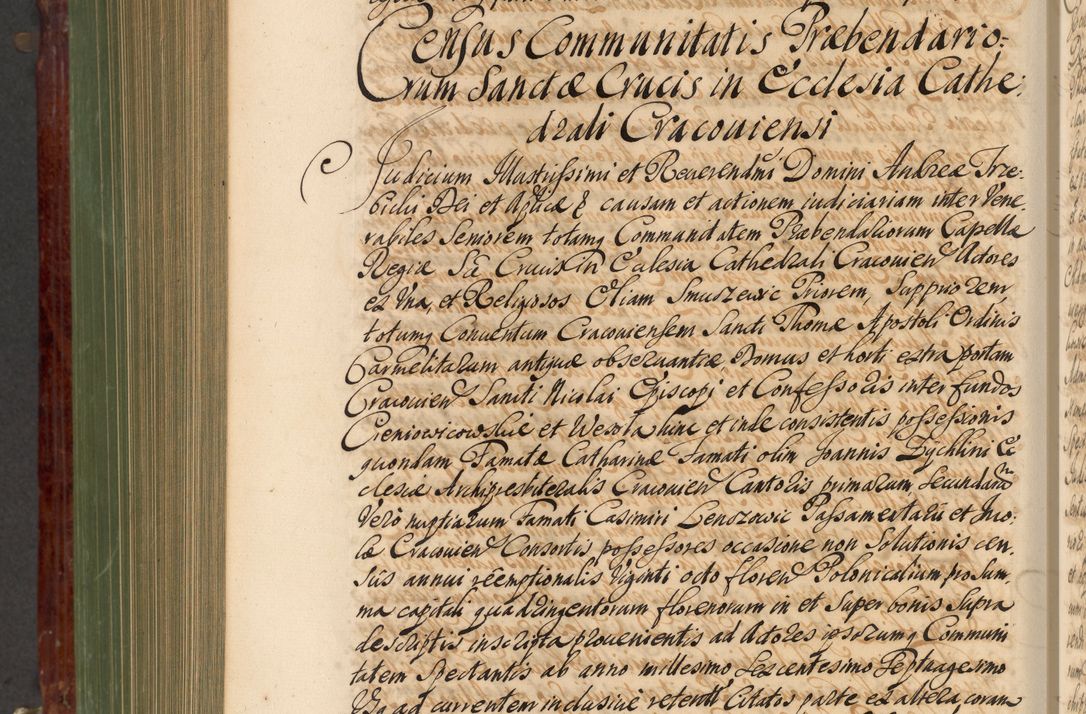 Census Communitatis Præbendario-
rum Sanctæ Crucis in Ecclesia Cathe-
drali Cracoviensi
Judicium Illustrissimi et Reverendmi Domini Andreæ Trze-
bicki Dei et Aplicæ & causam et actionem iudiciariam inter Vene-
rabiles Seniorem totamq Communitatem Præbendariorum Capellæ
Regiæ Sæ Crucis in Ecclesia Cathedrali Cracovien Actores
ex Vna, et Religiosos Eliam Smuszewic Priorem, Suppriorem
totumq Conventum Cracoviensem Sancti Thomæ Apostoli Ordinis
Carmelitarum antiquæ observantiæ, Domus et horti extra portam
Cracovien Sancti Nicolai Episcopi et Confessoris inter fundos
Cieniowicowskie et Wesola hinc et inde consistentis possessionis
quondam Famatæ Catharinæ Famati olim Joannis Zychlini Ec-
clesiæ Archipresbiteralis Cracovien Cantoris primarum secundarū
Verò nuptiarum Famati Casimiri Lenszowic Passamentarii et Inco-
læ Cracovien Consortis possessores occasione non Solutionis cen-
sûs annui rêemptionalis Viginti octo floren Polonicalium pro sum-
ma capitali quadringentorum florenorum in et super bonis supra
descriptis inscripta provenientis ad Actores ipsorumq Communi
tatem Spectantis ab anno millesimo sexcentesimo Septuagesimo
ad currentem inclusive retenti Citatos parte ex altera, coram